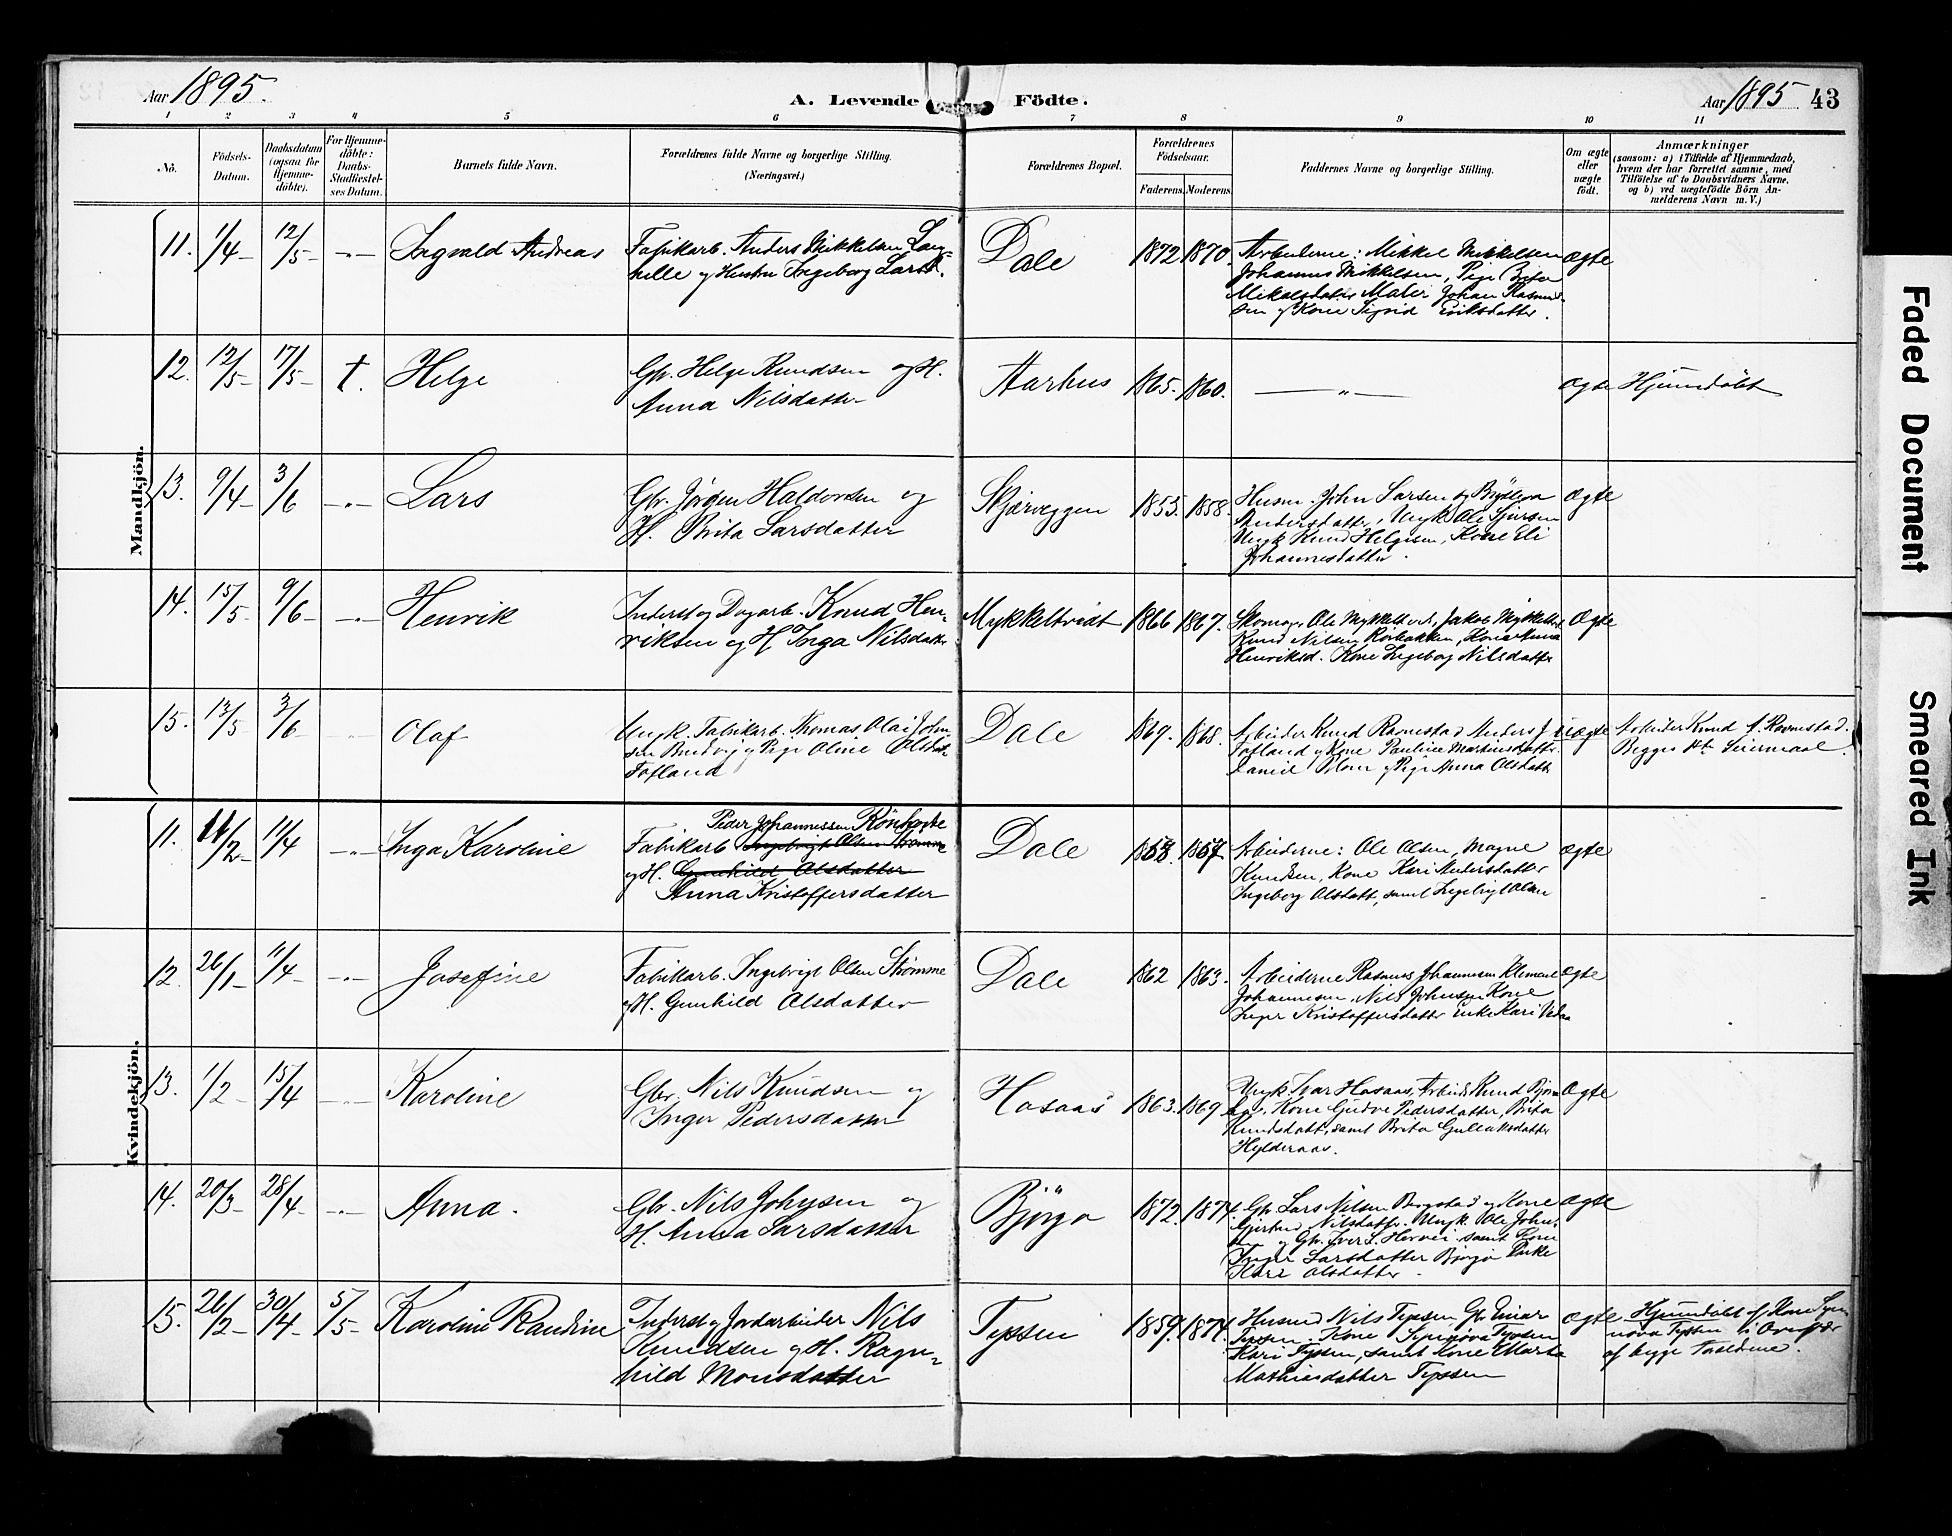 Aar 1895.
A. Levende Födte.
Aar 1895 43
1 2 3 4 5 6 7 8 9 10 11
No.
Födsels-
Datum.
Daabsdatum
(ogsaa for
Hjemme-
döbte).
For Hjemme-
döbte:
Daabs-
Stadfæstel-
ses Datum.
Barnets fulde Navn.
Forældrenes fulde Navne og borgerlige Stilling.
(Næringsvei.)
Forældrenes Bopæl.
Forældrenes
Födselsaar.
Faderens. Moderens.
Faddernes Navne og borgerlige Stilling.
Om ægte
eller
uægte
födt.
Anmærkninger
(saasom: a) i Tilfælde af Hjemmedaab,
hvem der har forrettet samme, med
Tilföielse af to Daabsvidners Navne,
og b) ved uægtefödte Börn An-
melderens Navn m. V.)
Mandkjön.
11. 1/4- 12/5- -"- Ingvald Andreas
Fabrikarb. Anders Mikkelsen Lang-
helle og Hustru Ingeborg Larsd.
Dale 1872 1870.
Arbeiderne: Mikkel Mikkelsen
Johannes Mikkelsen, Pige Brita
Mikalsdatter Maler Johan Rasmus-
sen og Kone Sigrid Eriksdatter.
ægte
12. 12/5- 17/5- †. Helge
Gbr. Helge Knudsen og H.
Anna Nilsdatter
Aarhus 1865. 1860. — " —
ægte Hjemdöbt
13. 9/4- 3/6 -"- Lars
Gbr. Jörgen Haldorsen og
H. Brita Larsdatter
Skjærveggen 1853. 1858.
Husm. John Larsen og
Andersdatter, Ungk Ole
Ungk Knud Helgesen, Kone Eli
Johannesdatter.
ægte
14. 15/5- 9/6- -"- Henrik
Inderst og Dagarb. Knud Hen-
riksen og H Inga Nilsdatter
Mykkeltvidt 1866 1867.
Skomag. Ole Mykkelt v.d. Jakob Mykkeltv.
Knud Nilsen Rörbakken, Kone Anna
Henriksd. Kone Ingeborg Nilsdatter
Ægte
15. 13/5- 3/6 Olaf
Ungk. Fabrikarb. Thomas Olai John-
sen og Pige Oline Olsdat.
Fosland
Dale 1869. 1868.
Arbeider Knud Ravnestad Anders J
og Kone Pauline Martinsdatter
Daniel og Pige Anna Olsdatter
uægte
Arbeider Knud A. Ravnestad.
Begges 1ste Leiermaal.
Kvindekjön.
11. 11/2- 11/4 -"- Inga Karoline
Peder Johannessen
Fabrikarb Ingebrigt Olsen Strømme
og H. Gunhild Olsdatter
Anna Kristoffersdatter
Dale 1868. 1867
Arbeiderne: Ole Olsen, Magne
Knudsen, Kone Kari Andersdatter
Ingeborg Olsdatt, samt Ingebrigt Olsen
ægte
12. 26/1- 11/4- -"- Josefine
Fabrikarb. Ingebrigt Olsen Strømme
og H. Gunhild Olsdatter
Dale 1862 1863.
Arbeiderne Rasmus Johannesen Klement
Johannesen, Nils Johnsen Kone
Inger Kristoffersdatter Enke Kari
ægte
13. 1/2- 15/4 -"- Karoline
Gbr. Nils Knudsen og
Inger Pedersdatter
Hosaas 1863. 1869
Ungk. Ivar Hosaas, Arbeid. Knud Björn
Kone Gudve Pedersdatter, Brita
Knudsdatt, samt Brita Gullaksdatter
Hylderaas.
Ægte
14. 20/3- 28/4- -"- Anna.
Gbr. Nils Johnsen og
H. Anna Larsdatter
Björgo 1872. 1874.
Gbr. Lars Nilsen Bergstad og Kone
Gjertrud Nilsdatter. Ungk. Ole John-
sen og Gbr. Iver S. Hervei. samt Kone
Inger Larsdatter Björgo Enke
Kari Olsdatter.
Ægte
15. 26/2- 30/4- 5/5- Karoline Randine
Inderst og Jordarbeider Nils
Knudsen og H. Ragn-
hild Monsdatter
Tyssen 1859. 1874.
Husmd Nils Tyssen, Gbr Einar
Tyssen. Kone Synnöva Tyssen
Kari Tyssen, samt Kone Marta
Mathiasdatter Tyssen
ægte
Hjemdöbt af Kone Syn-
növa Tyssen i Overvær
af begge Forældrene.
Faded Document
Smeared Ink